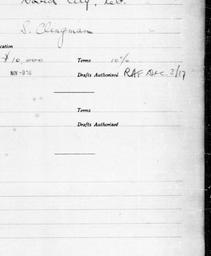 City,
S. Clingman
cation
$10,000 Terms 10%
NOV - Drafts Authorized RAF Dec. 2/17
Terms
Drafts Authorized